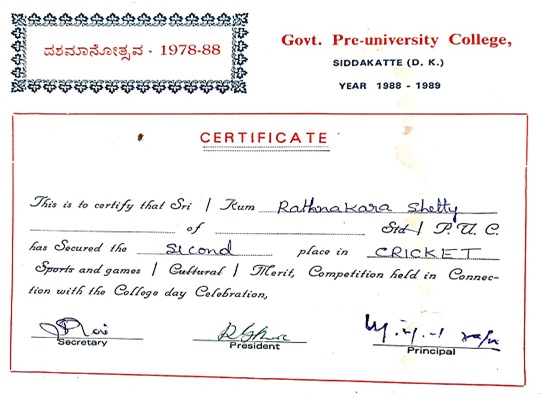 ದಶಮಾನೋತ್ಸವ - 1978-88
Govt. Pre-university College,
SIDDAKATTE (D. K.)
YEAR 1988 - 1989
CERTIFICATE
This is to certify that Sri / Kum Rathnakara Shetty
of Std / P. U. C.
has Secured the Second place in CRICKET
Sports and games / Cultural / Merit, Competition held in Connec-
tion with the College day Celebration,
Secretary
President
Principal